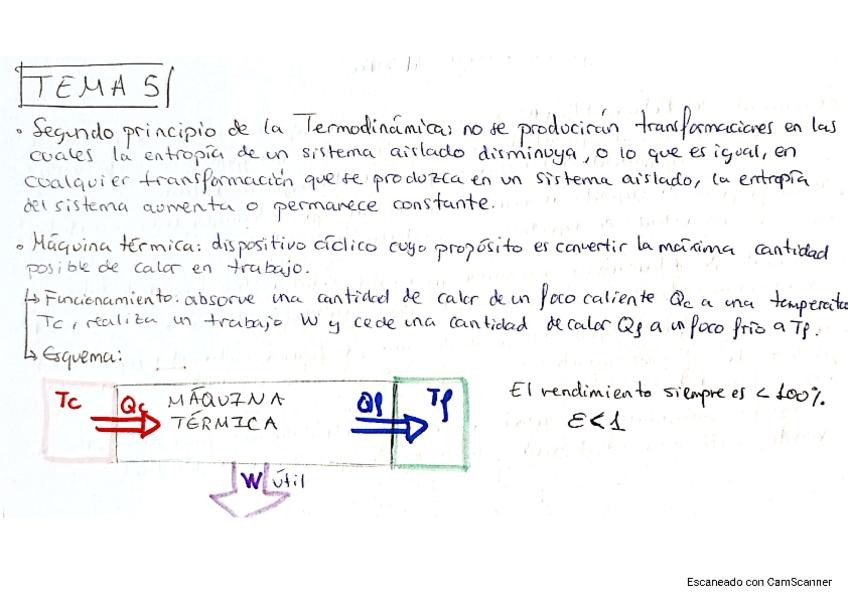 TEMA 5
• Segundo principio de la Termodinámica: no se producirán transformaciones en las
cuales la entropía de un sistema aislado disminuya, o lo que es igual, en
cualquier transformación que se produzca en un sistema aislado, la entropía
del sistema aumenta o permanece constante.
• Máquina térmica: dispositivo cíclico cuyo propósito es convertir la máxima cantidad
posible de calor en trabajo.
↳ Funcionamiento: absorve una cantidad de calor de un foco caliente Qc a una temperatu
Tc, realiza un trabajo W y cede una cantidad de calor Qf a un foco frío a Tf.
↳ Esquema:
Tc Qc MÁQUINA TÉRMICA Qf Tf
W útil
El rendimiento siempre es < 100%.
ε < 1
Escaneado con CamScanner